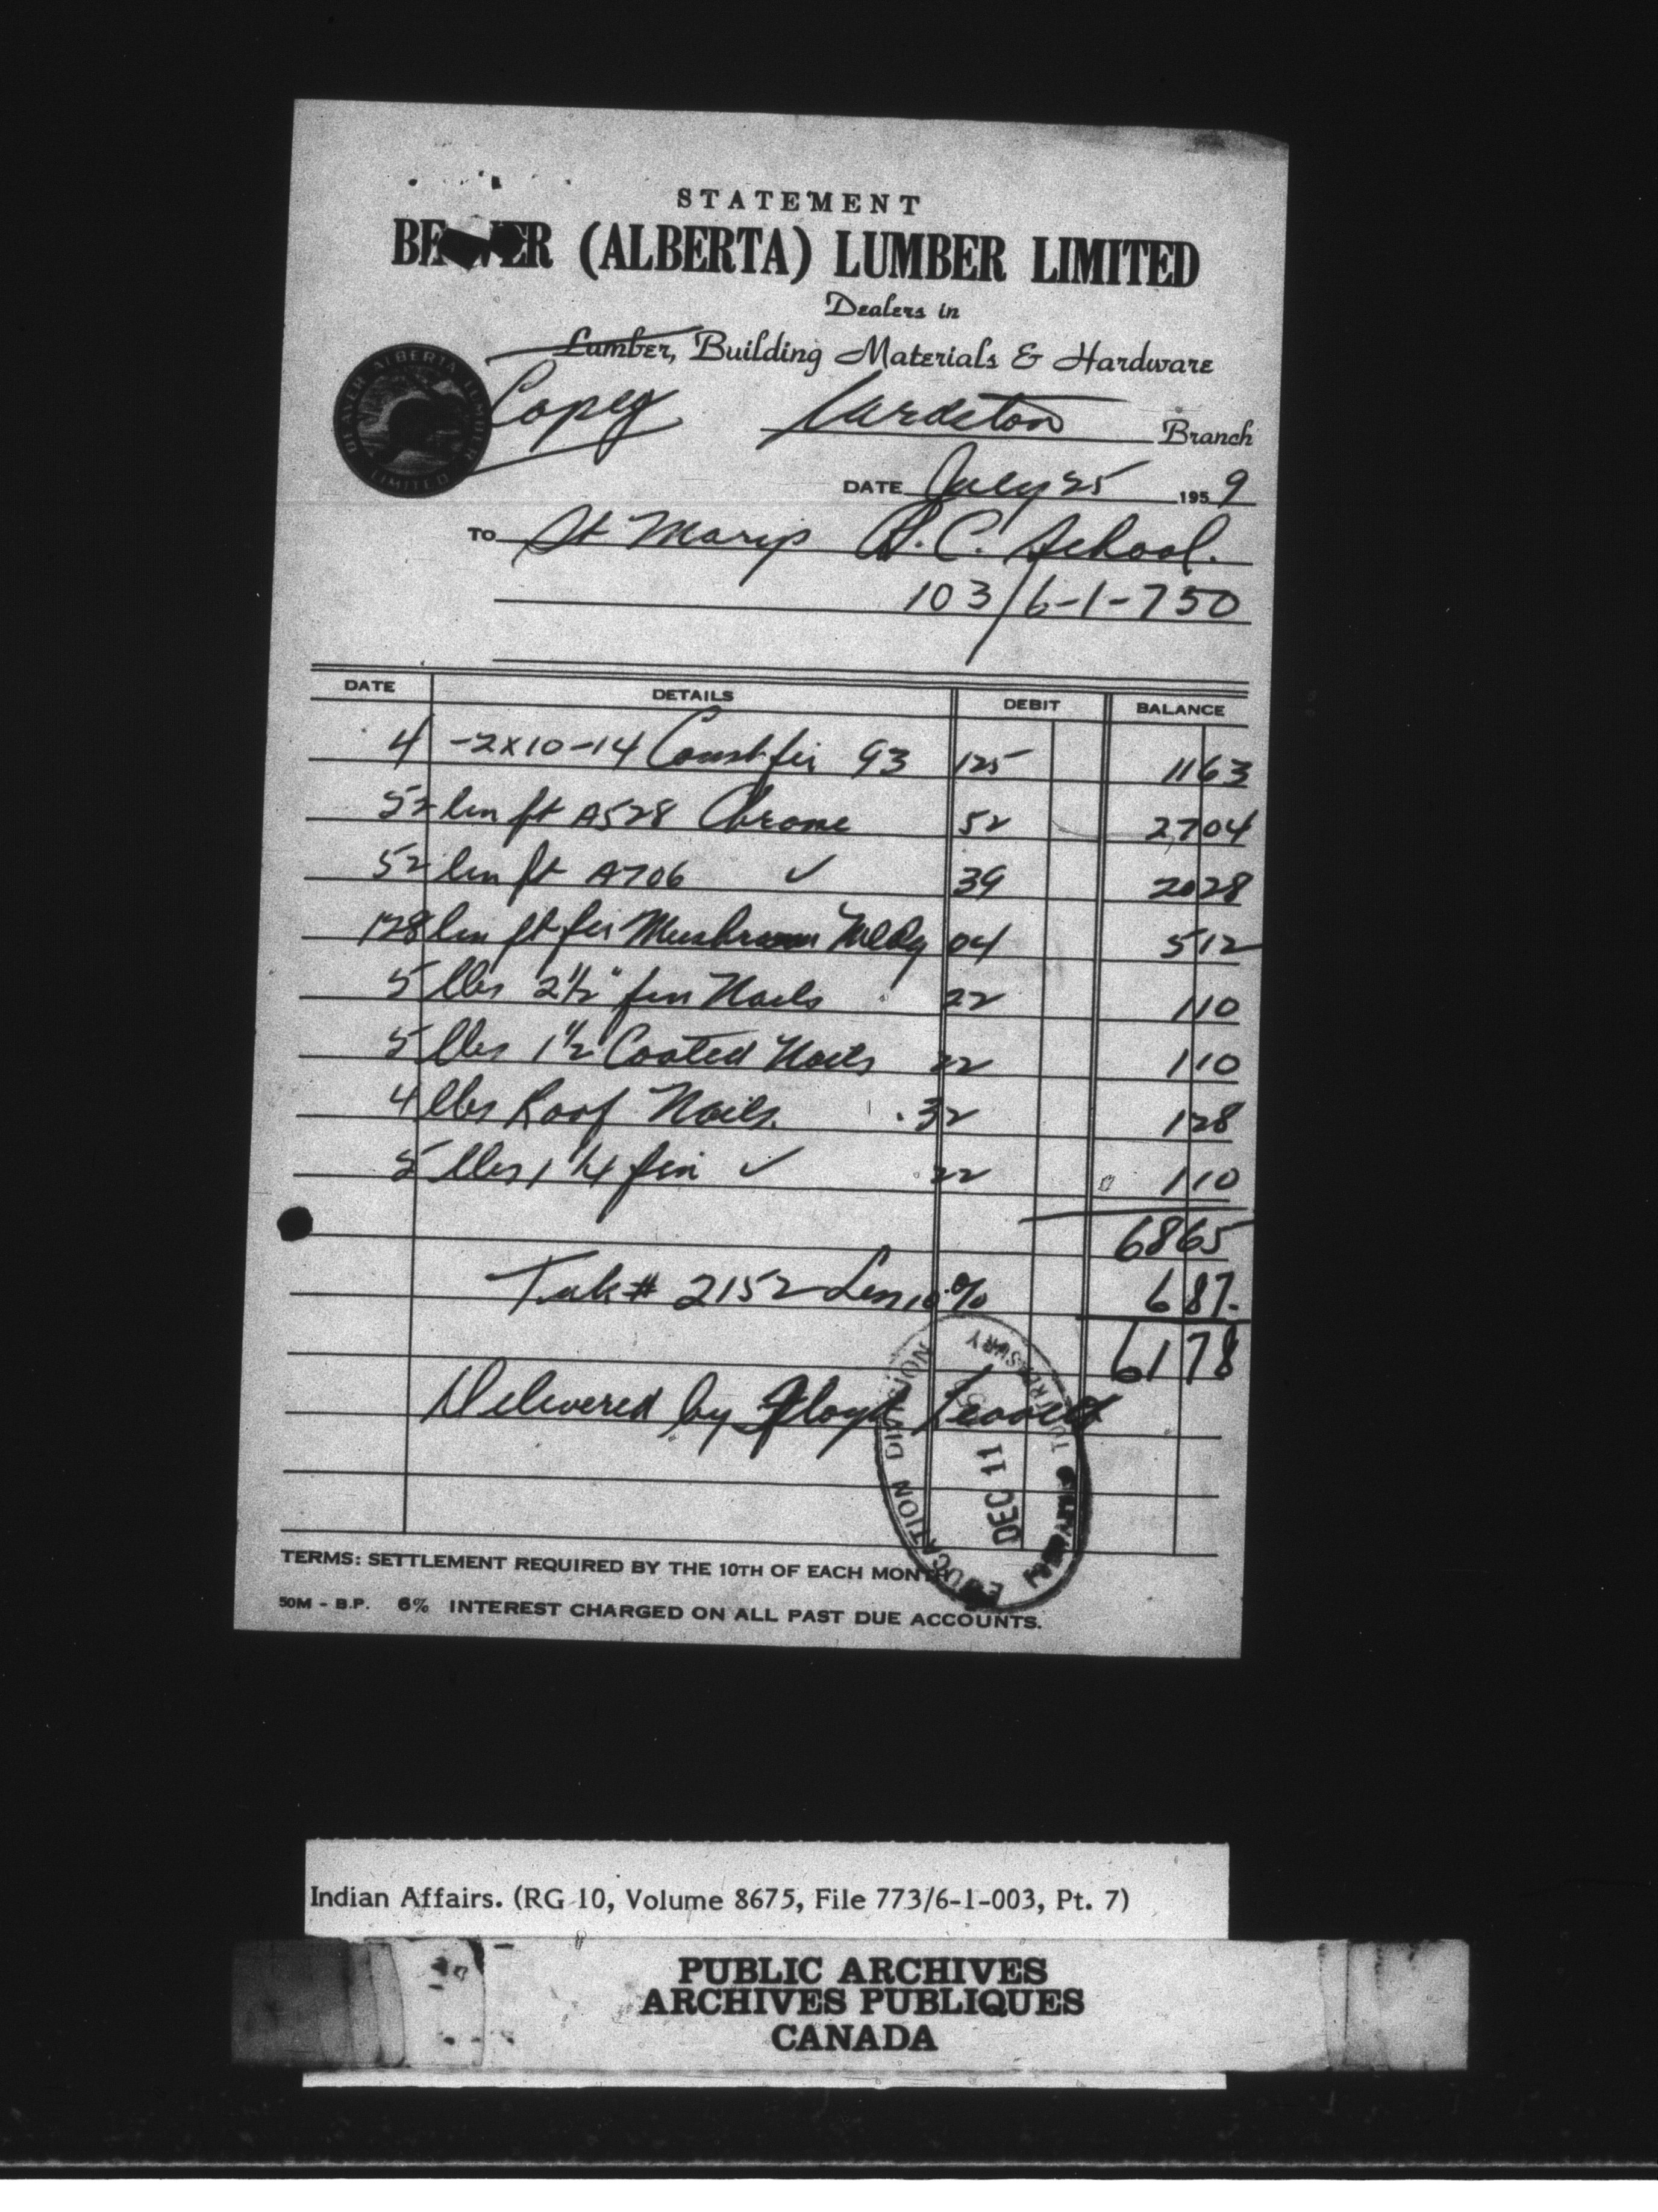 STATEMENT
BEAVER (ALBERTA) LUMBER LIMITED
Dealers in
Lumber, Building Materials & Hardware
BEAVER ALBERTA LUMBER LIMITED
Copey Cardston Branch
DATE July 25 1959
TO St Marys R.C. School.
103/6-1-750
DATE DETAILS DEBIT BALANCE
4 -2x10-14 Const fir 93 125 1163
52 lin ft A528 Chrome 52 2704
52 lin ft A706 ✓ 39 2028
128 lin ft fir Mushroom Mldg 04 512
5 lbs 2 1/2" fin Nails 22 110
5 lbs 1 1/2 Coated Nails 22 110
4 lbs Roof Nails. .32 128
5 lbs 1 1/4 fin ✓ 22 110
6865
# 2152 Less 10% 687.
6178
Delivered by Floyd
EDUCATION DIVISION
DEC 11
TREASURY
TERMS: SETTLEMENT REQUIRED BY THE 10TH OF EACH MONTH
50M - B.P. 6% INTEREST CHARGED ON ALL PAST DUE ACCOUNTS.
Indian Affairs. (RG 10, Volume 8675, File 773/6-1-003, Pt. 7)
PUBLIC ARCHIVES
ARCHIVES PUBLIQUES
CANADA